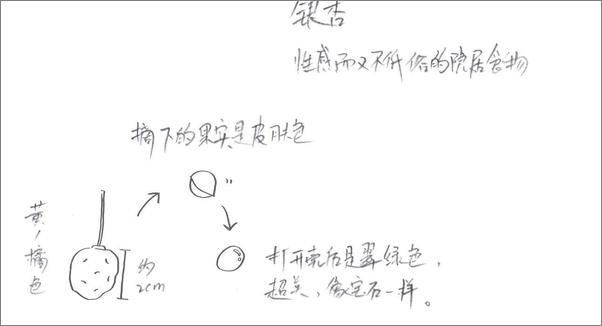 银杏
性感而又不低俗的院居食物
摘下的果实是皮肤色
黄、橘色
约
2cm
打开壳后是翠绿色，
超美，像宝石一样。